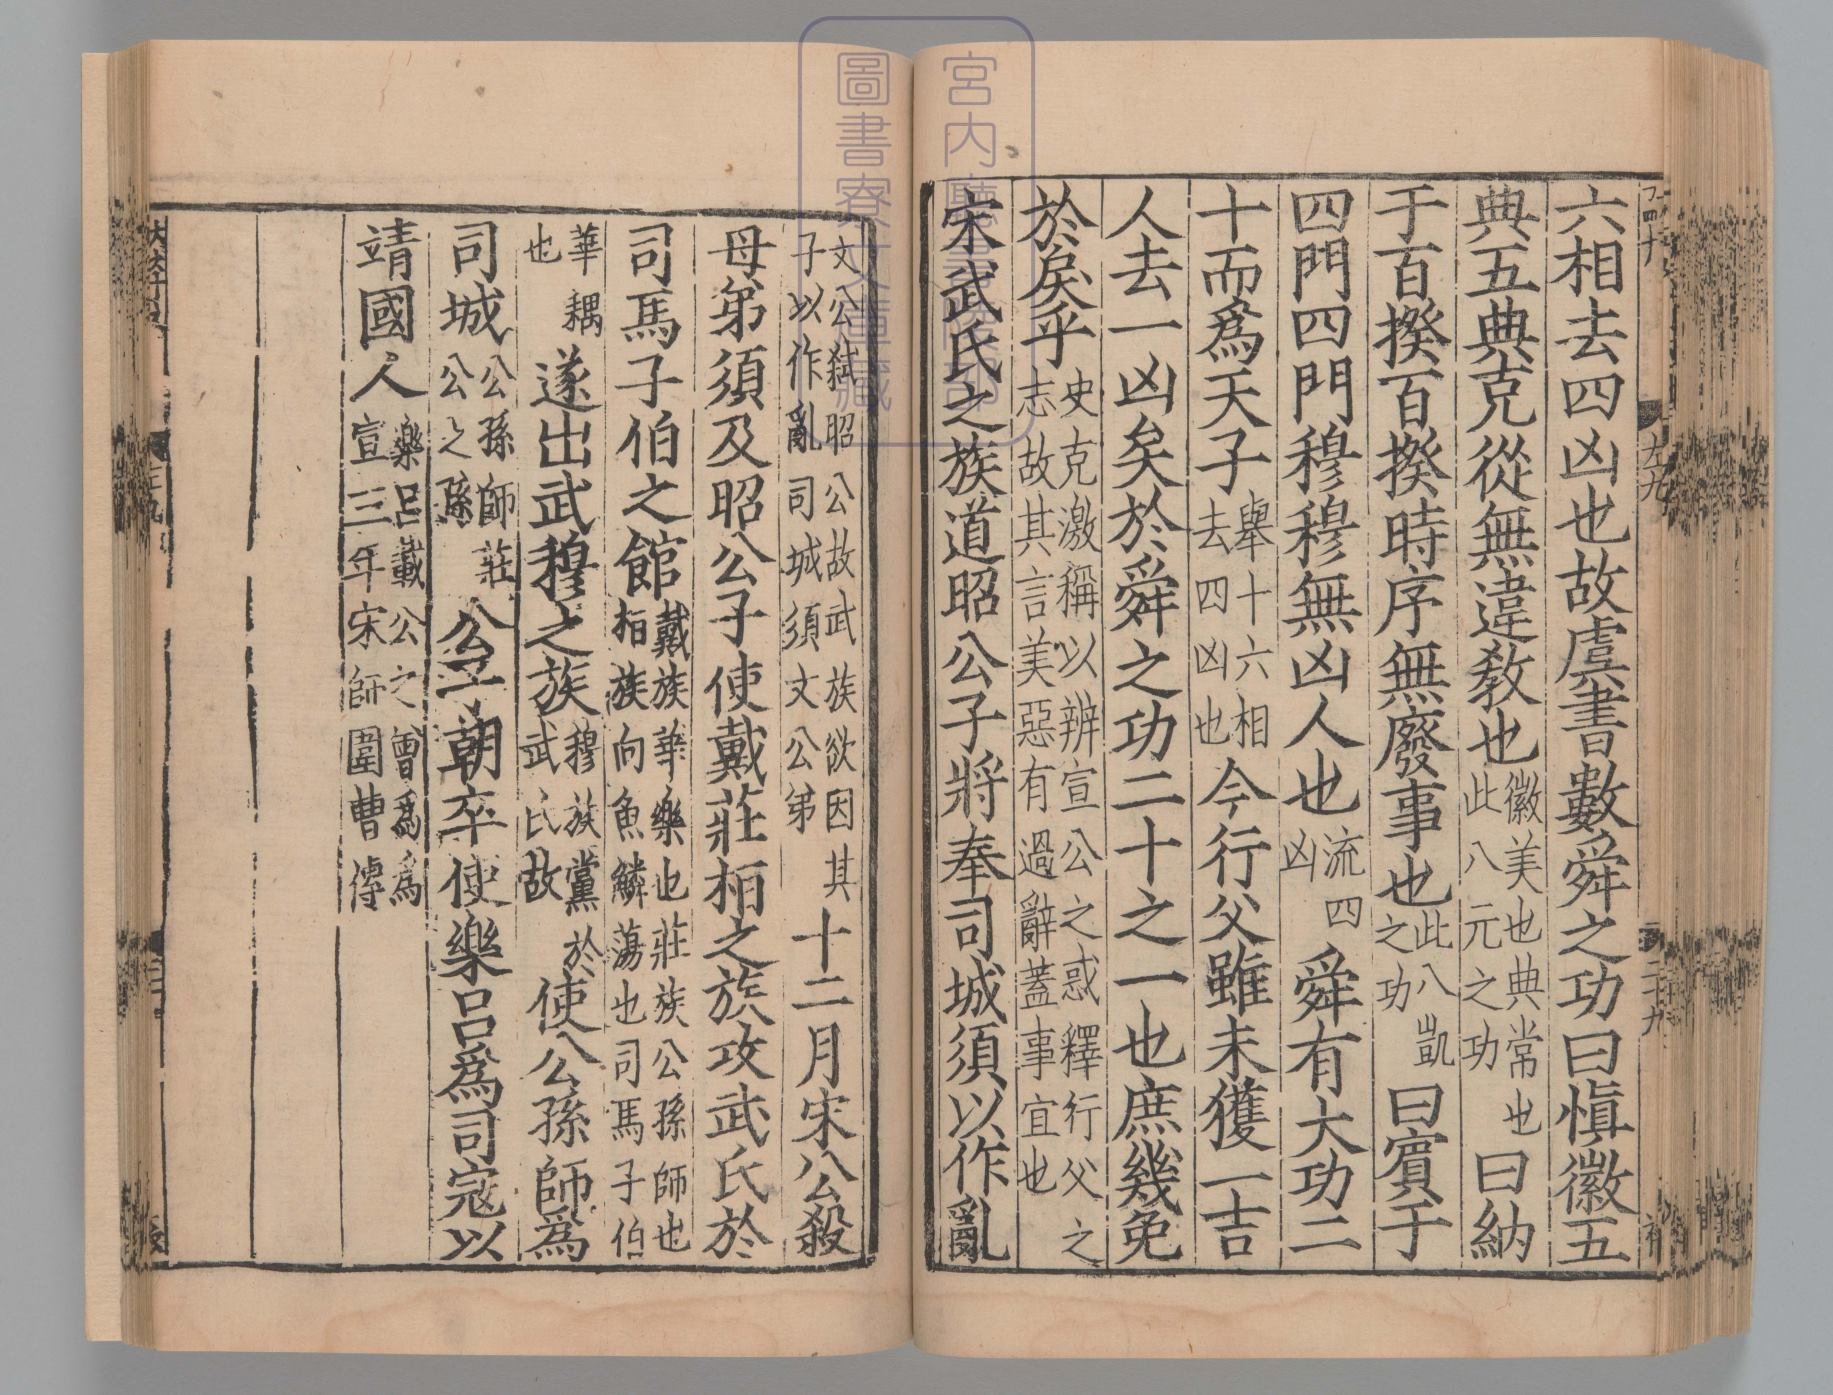 六相去四凶也故虞書數舜之功曰慎徽五
典五典克從無違教也徽美也典常也此八元之功曰納
于百揆百揆時序無廢事也此八凱之功曰賓于
四門四門穆穆無凶人也流四凶舜有大功二
十而爲天子舉十六相去四凶也今行父雖未獲一吉
人去一凶矣於舜之功二十之一也庶幾免
於戾乎史克激稱以辨宣公之惑釋行父之志故其言美惡有過辭蓋事宜也
宋武氏之族道昭公子將奉司城須以作亂
文公弑昭公故武族欲因其子以作亂司城須文公弟十二月宋公殺
母弟須及昭公子使戴莊桓之族攻武氏於
司馬子伯之館戴族華樂也莊族公孫師也桓族向魚鱗蕩也司馬子伯
華耦也遂出武穆之族穆族黨於武氏故使公孫師爲
司城公孫師莊公之孫公子朝卒使樂呂爲司寇以
靖國人樂呂戴公之曾爲爲宣三年宋師圍曹傳
宮内廳書陵部
圖書寮文庫藏